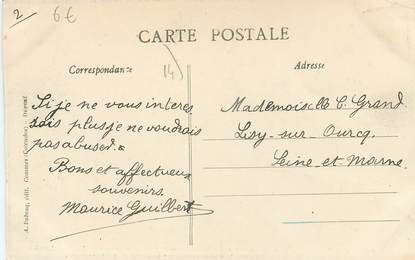 2
6€
CARTE POSTALE
Correspondance
Adresse
(4)
Si je ne vous interes
sais plus je ne voudrais
pas abuser.
Bons et affectueux
souvenirs.
Maurice Guilbert
Mademoiselle C. Grand
Lisy-sur-Ourcq.
Seine-et-Marne.
édit.